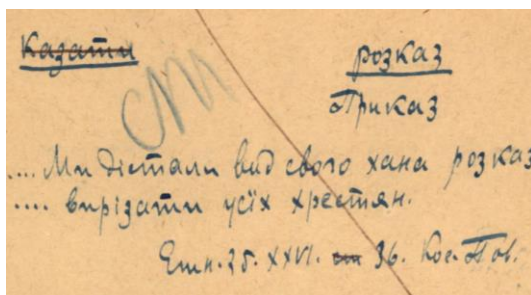 Казати розказ
Приказ
.... Ми дістали вид свого хана розказ
.... вирізати усїх хрестян.
Етн. Зб. XXVI. 36. Кос. Пов.